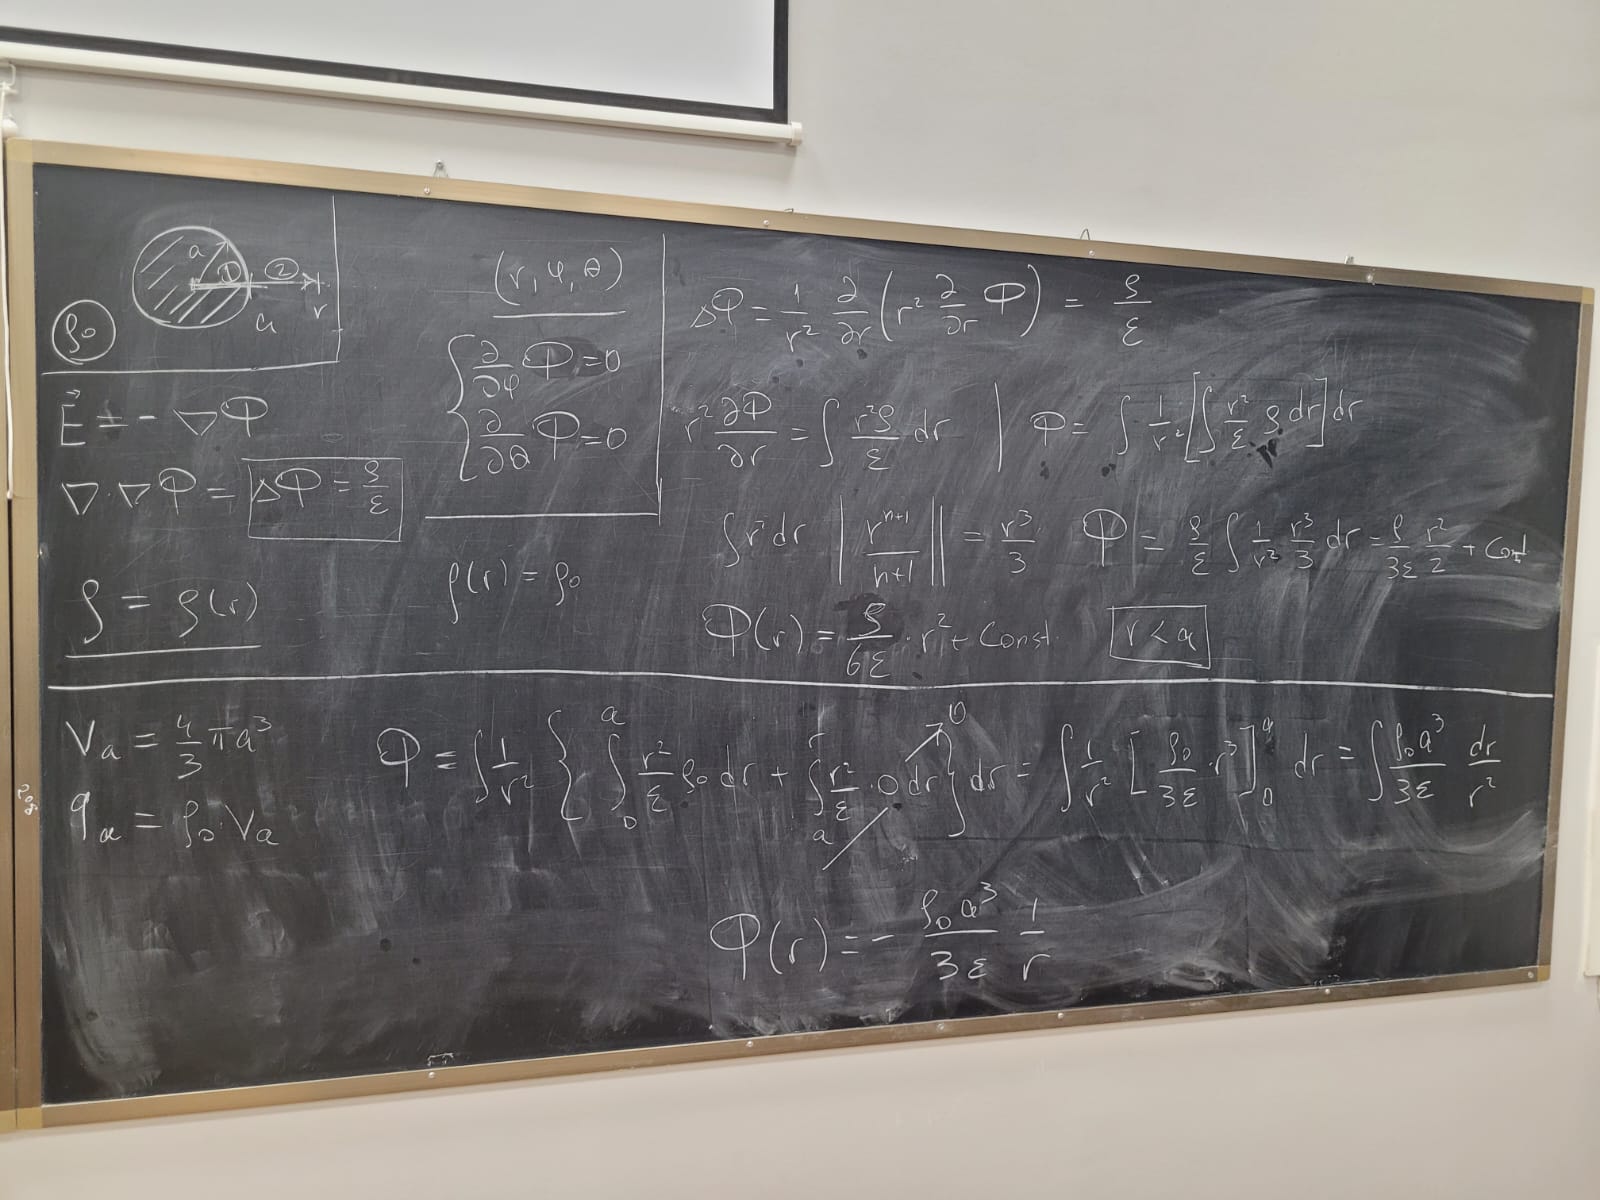 a ① ② r
a
ρ₀
E⃗ = - ∇Φ
∇·∇Φ = ΔΦ = ρ/ε
ρ = ρ(r)
(r, φ, θ)
∂/∂φ Φ = 0
∂/∂θ Φ = 0
ρ(r) = ρ₀
ΔΦ = 1/r² ∂/∂r (r² ∂/∂r Φ) = ρ/ε
r² ∂Φ/∂r = ∫ r²ρ/ε dr | Φ = ∫ 1/r² [∫ r²/ε ρ dr] dr
∫r² dr | rⁿ⁺¹/n+1 || = r³/3 Φ = ρ/ε ∫ 1/r² r³/3 dr = ρ/3ε r²/2 + Const
Φ(r) = ρ/6ε · r² + Const. r < a
Vₐ = 4/3 πa³
qₐ = ρ₀·Vₐ
Φ = ∫ 1/r² { ∫₀ᵃ r²/ε ρ₀ dr + ∫ₐʳ r²/ε · 0 dr } dr = ∫ 1/r² [ρ₀/3ε · r³]₀ᵃ dr = ∫ ρ₀a³/3ε dr/r²
0
Φ(r) = - ρ₀a³/3ε 1/r